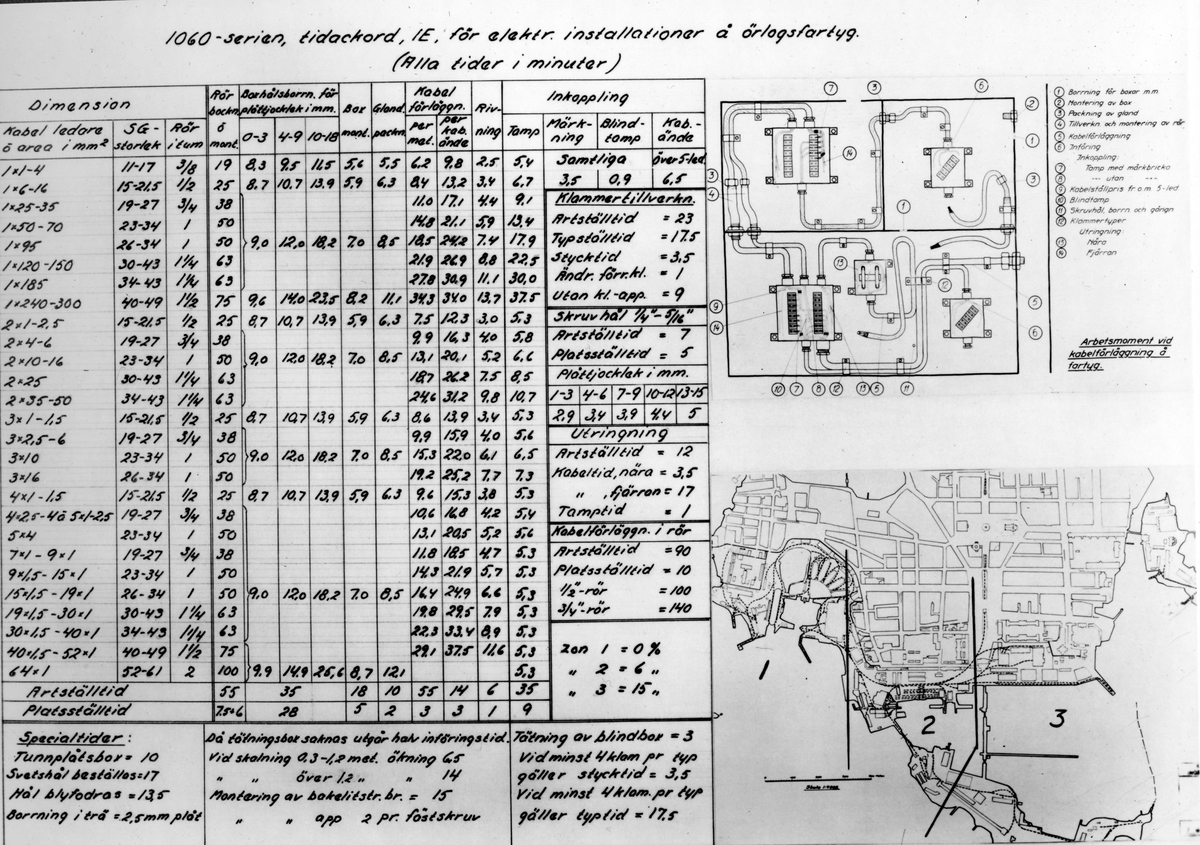 1060-serien, tidackord, IE, för elektr. installationer å örlogsfartyg.
(Alla tider i minuter)
Dimension Rör bockn. ö mont. Boxhålsborrn. för plåttjocklek i mm. Box mont. Gland. packn. Kabel förläggn. Riv-ning Inkoppling
Kabel ledare ö area i mm² SG-storlek Rör i tum 0-3 4-9 10-18 per met. per kab. ände Tamp Märk-ning Blind-tamp Kab.-ände
1×1-4 11-17 3/8 19 8,3 9,5 11,5 5,6 5,5 6,2 9,8 2,5 5,4 Samtliga över 5-led.
1×6-16 15-21,5 1/2 25 8,7 10,7 13,9 5,9 6,3 8,4 13,2 3,4 6,7 3,5 0,9 6,5
1×25-35 19-27 3/4 38 11,0 17,1 4,4 9,1 Klammertillverkn.
1×50-70 23-34 1 50 14,8 21,1 5,9 13,4 Artställtid = 23
1×95 26-34 1 50 9,0 12,0 18,2 7,0 8,5 18,5 24,2 7,4 17,9 Typställtid = 17.5
1×120-150 30-43 1 1/4 63 21,9 26,9 8,8 22,5 Stycktid = 3,5
1×185 34-43 1 1/4 63 27,8 30,9 11,1 30,0 Ändr. förr. kl. = 1
1×240-300 40-49 1 1/2 75 9,6 14,0 23,5 8,2 11,1 34,3 34,0 13,7 37,5 Utan kl.-app. = 9
2×1-2,5 15-21,5 1/2 25 8,7 10,7 13,9 5,9 6,3 7,5 12,3 3,0 5,3 Skruvhål 1/4"-5/16"
2×4-6 19-27 3/4 38 9,9 16,3 4,0 5,8 Artställtid = 7
2×10-16 23-34 1 50 9,0 12,0 18,2 7,0 8,5 13,1 20,1 5,2 6,6 Platsställtid = 5
2×25 30-43 1 1/4 63 18,7 26,2 7.5 8,5 Plåttjocklek i mm.
2×35-50 34-43 1 1/4 63 24,6 31,2 9,8 10,7 1-3 4-6 7-9 10-12 13-15
3×1-1,5 15-21,5 1/2 25 8,7 10,7 13,9 5,9 6,3 8,6 13,9 3,4 5,3 2,9 3,4 3,9 4,4 5
3×2,5-6 19-27 3/4 38 9,9 15,9 4,0 5,6 Utringning
3×10 23-34 1 50 9,0 12,0 18,2 7,0 8,5 15,3 22,0 6,1 6,5 Artställtid = 12
3×16 26-34 1 50 19,2 25,2 7,7 7,3 Kabeltid, nära = 3,5
4×1-1,5 15-21,5 1/2 25 8,7 10,7 13,9 5,9 6,3 9,6 15,3 3,8 5,3 " , fjärran = 17
4×2,5-4 ö 5×1-2,5 19-27 3/4 38 10,6 16,8 4,2 5,4 Tamptid = 1
5×4 23-34 1 50 13,1 20,5 5,2 5,6 Kabelförläggn. i rör
7×1-9×1 19-27 3/4 38 11,8 18,5 4,7 5,3 Artställtid = 90
9×1,5-15×1 23-34 1 50 14,3 21,9 5,7 5,3 Platsställtid = 10
15×1,5-19×1 26-34 1 50 9,0 12,0 18,2 7,0 8,5 16,4 24,9 6,6 5,3 1/2"-rör = 100
19×1,5-30×1 30-43 1 1/4 63 19,8 29,5 7,9 5,3 3/4"-rör = 140
30×1,5-40×1 34-43 1 1/4 63 22,3 33,4 8,9 5,3
40×1,5-52×1 40-49 1 1/2 75 29,1 37,5 11,6 5,3 Zon 1 = 0%
64×1 52-61 2 100 9,9 14,9 25,6 8,7 12,1 5,3 " 2 = 6 "
Artställtid 55 35 18 10 55 14 6 35 " 3 = 15 "
Platsställtid 7.5+6 28 5 2 3 3 1 9
Specialtider:
Tunnplåtsbox = 10
Svetshål beställes = 17
Hål blyfodras = 13,5
Borrning i trä = 2,5mm plåt
Då tätningsbox saknas utgår halv införingstid.
Vid skalning 0,3-1,2 met. ökning 6,5
" " över 1,2 " " 14
Montering av bakelitstr. br. = 15
" " app 2 pr. fästskruv
Tätning av blindbox = 3
Vid minst 4 klam. pr typ
gäller stycktid = 3,5
Vid minst 4 klam. pr typ
gäller typtid = 17.5
7 3 6 2 1 3 14 3 4 1 13 12 9 14 5 6
10 7 8 12 13 5 11
1 Borrning för boxar m m
2 Montering av box
3 Packning av gland
4 Tillverkn. och montering av rör
5 Kabelförläggning
6 Införing
Inkoppling:
7 Tamp med märkbricka
8 - " - utan - " -
9 Kabelställpris fr o m 5-led
10 Blindtamp
11 Skruvhål, borrn och gängn
12 Klammertyper
Utringning:
13 Nära
14 Fjärran
Arbetsmoment vid
kabelförläggning å
fartyg.
1 2 3